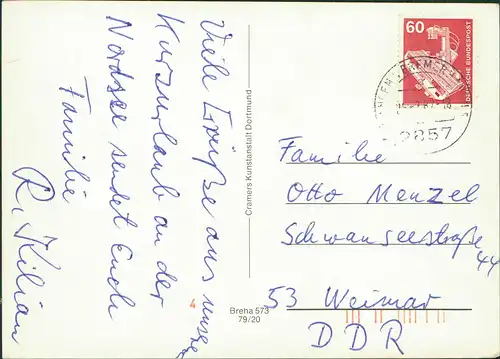 Viele Grüße aus unserem
Kurzurlaub an der
Nordsee sendet Euch
Familie
R. Kilian
Cramers Kunstanstalt Dortmund
Breha 573
79/20
60
DEUTSCHE BUNDESPOST
2857
Familie
Otto Menzel
Schwanseestraße 44
53 Weimar
DDR